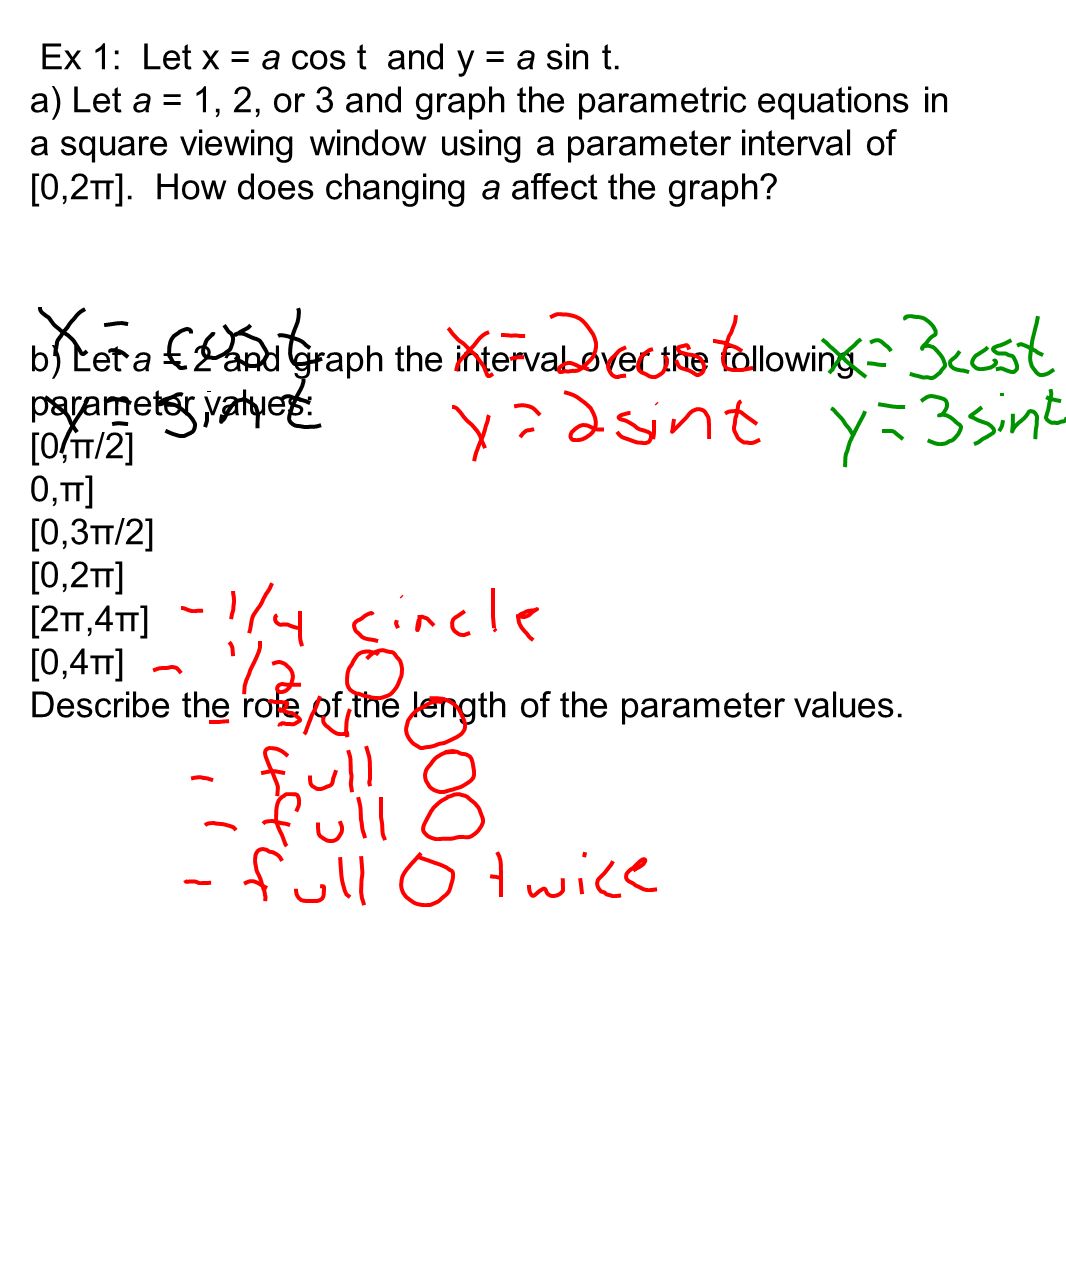 Ex 1: Let x = a cos t and y = a sin t.
a) Let a = 1, 2, or 3 and graph the parametric equations in
a square viewing window using a parameter interval of
[0,2π]. How does changing a affect the graph?
x = cost x = 2cost x = 3cost
b) Let a = 2 and graph the interval over the following
y = sint y = 2sint y = 3sint
parameter values:
[0,π/2]
0,π]
[0,3π/2]
[0,2π]
[2π,4π]
- 1/4 circle
[0,4π]
- 1/2 O
Describe the role of the length of the parameter values.
- 3/4 O
- full O
- full O
- full O twice